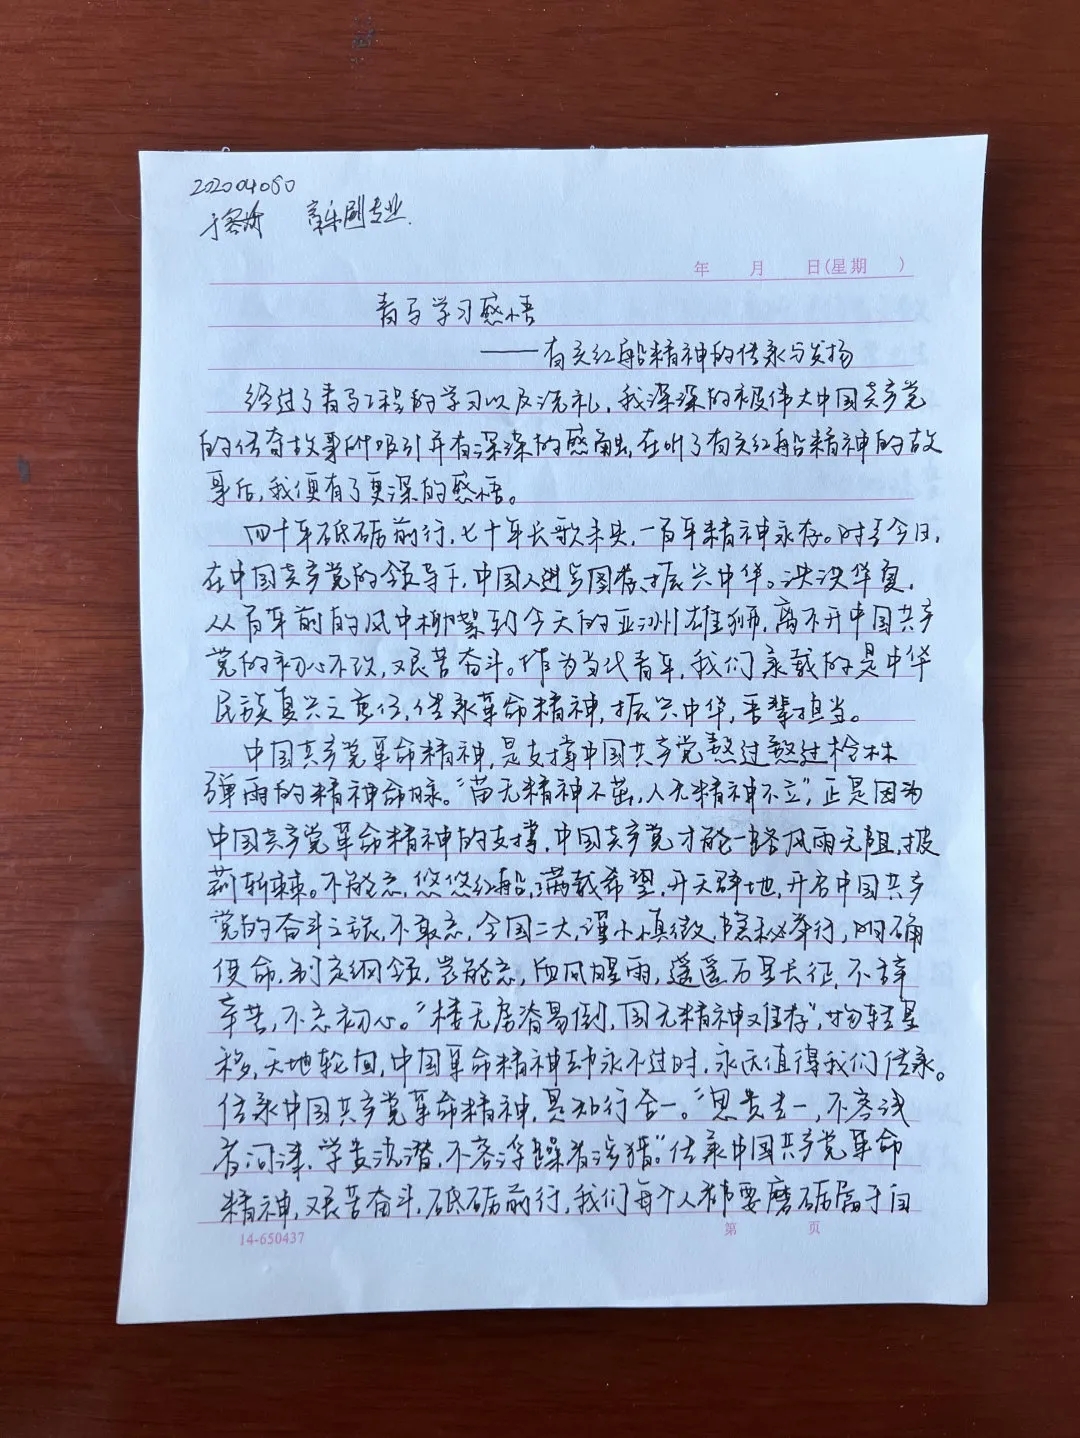 202004050
音乐剧专业
年 月 日(星期 )
青马学习感悟
——有关红船精神的传承与发扬
经过了青马工程的学习以及洗礼,我深深的被伟大中国共产党
的传奇故事所吸引并有深深的感触,在听了有关红船精神的故
事后,我便有了更深的感悟。
四十年砥砺前行,七十年长歌未央,一百年精神永存。时至今日,
在中国共产党的领导下,中国人进步图存,振兴中华。泱泱华夏,
从百年前的风中柳絮到今天的亚洲雄狮,离不开中国共产
党的初心不改,艰苦奋斗。作为当代青年,我们承载的是中华
民族复兴之重任,传承革命精神,振兴中华,吾辈担当。
中国共产党革命精神,是支撑中国共产党熬过熬过枪林
弹雨的精神命脉。“苗无精神不茁,人无精神不立”,正是因为
中国共产党革命精神的支撑,中国共产党才能一路风雨无阻,披
荆斩棘。不能忘,悠悠红船,满载希望,开天辟地,开启中国共产
党的奋斗之旅,不敢忘,全国二大,谨小慎微,隐秘举行,明确
使命,制定纲领,岂能忘,血风腥雨,遥遥万里长征,不辞
辛苦,不忘初心。“楼无房脊易倒,国无精神难存”,物转星
移,天地轮回,中国革命精神却永不过时,永远值得我们传承。
传承中国共产党革命精神,是知行合一。“思贵专一,不容浅
者问津,学贵沈潜,不容浮躁者涉猎。”传承中国共产党革命
精神,艰苦奋斗,砥砺前行,我们每个人都要磨砺属于自
14-650437 第 页